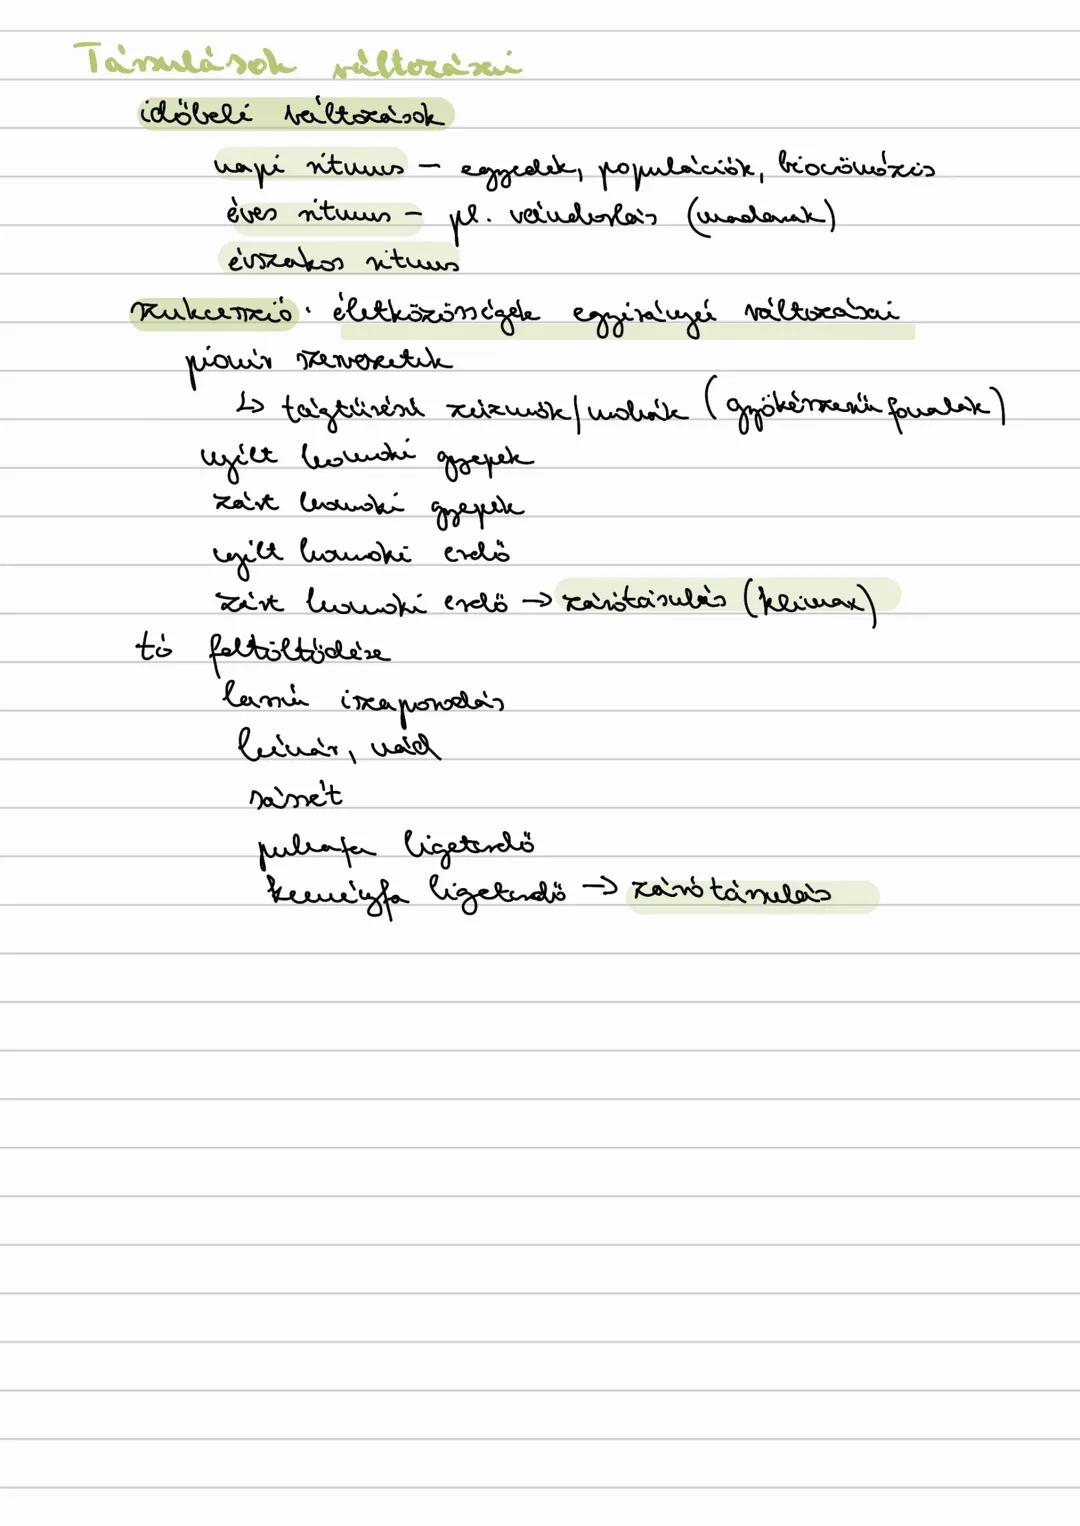 Társulások változásai
időbeli változások
napi ritmus – egyedek, populációk, biocönózis
éves ritmus – pl. vándorlás (madarak)
évszakos ritmus
szukcesszió: életközösségek egyirányú változásai
pionír szervezetek
↳ tágtűrésű zuzmók/mohák (gyökérszerű fonalak)
nyílt homoki gyepek
zárt homoki gyepek
nyílt homoki erdő
zárt homoki erdő → zárótársulás (klimax)
tó feltöltődése
lassú iszaposodás
hínár, nád
sásrét
puhafa ligeterdő
keményfa ligeterdő → záró társulás